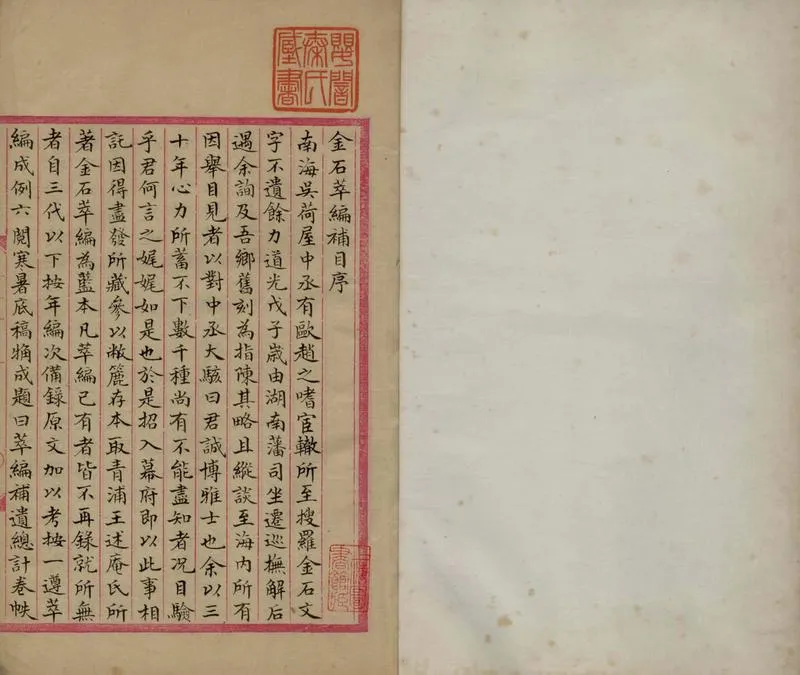 嬰闇
秦氏
藏書
金石萃編補目序
南海吳荷屋中丞有歐趙之嗜宦轍所至搜羅金石文
字不遺餘力道光戊子歲由湖南藩司坐遷巡撫解后
遇余詢及吾鄉舊刻為指陳其略且縱談至海內所有
因舉目見者以對中丞大駭曰君誠博雅士也余以三
十年心力所蓄不下數千種尚有不能盡知者况目驗
乎君何言之娓娓如是也於是招入幕府即以此事相
託因得盡發所藏參以敝簏存本取青浦王述庵氏所
著金石萃編為藍本凡萃編已有者皆不再錄就所無
者自三代以下按年編次備錄原文加以考按一遵萃
編成例六閱寒暑底稿觕成題曰萃編補遺總計卷帙
上海圖
書館藏